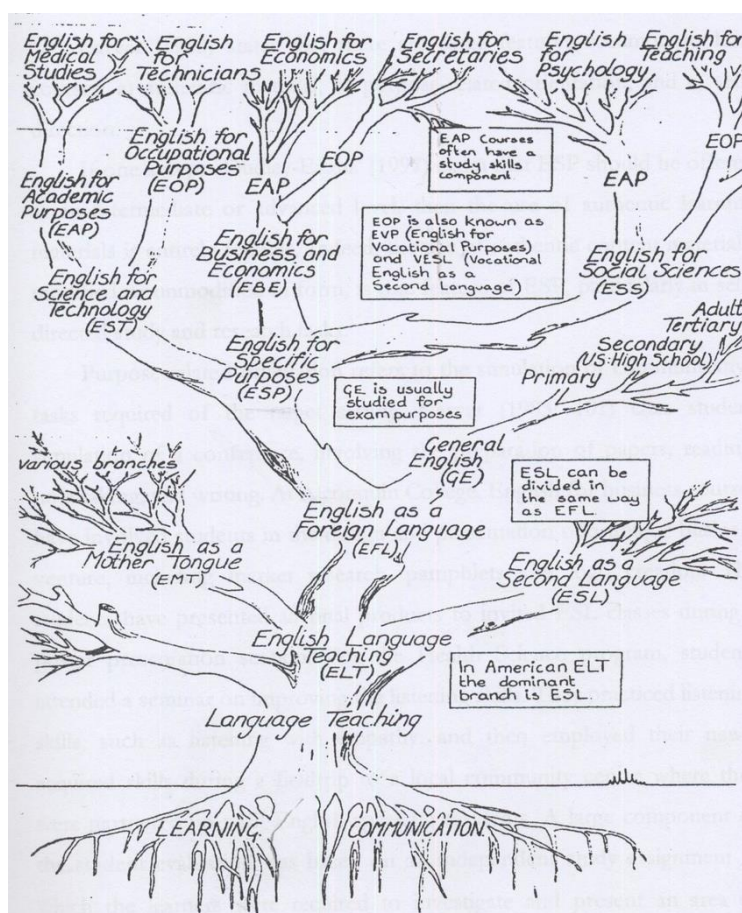 English for
Medical
Studies
English
for
Technicians
English for
Economics
English for
Secretaries
English
for
Psychology
English for
Teaching
English for
Occupational
Purposes
(EOP)
EAP
EOP
EAP Courses
often have a
study skills
component
EAP
EOP
English for
Academic
Purposes
(EAP)
English for
Business and
Economics
(EBE)
EOP is also known as
EVP (English for
Vocational Purposes)
and VESL (Vocational
English as a
Second Language)
English for
Social Sciences
(ESS)
English for
Science and
Technology
(EST)
English for
Specific
Purposes
(ESP)
GE is usually
studied for
exam purposes
Adult
Tertiary
Secondary
(US:High School)
Primary
General
English
(GE)
various branches
English as a
Foreign Language
(EFL)
ESL can be
divided in
the same way
as EFL.
English as a
Mother Tongue
(EMT)
English as a
Second Language
(ESL)
English Language
Teaching
(ELT)
In American ELT
the dominant
branch is ESL
Language Teaching
LEARNING
COMMUNICATION